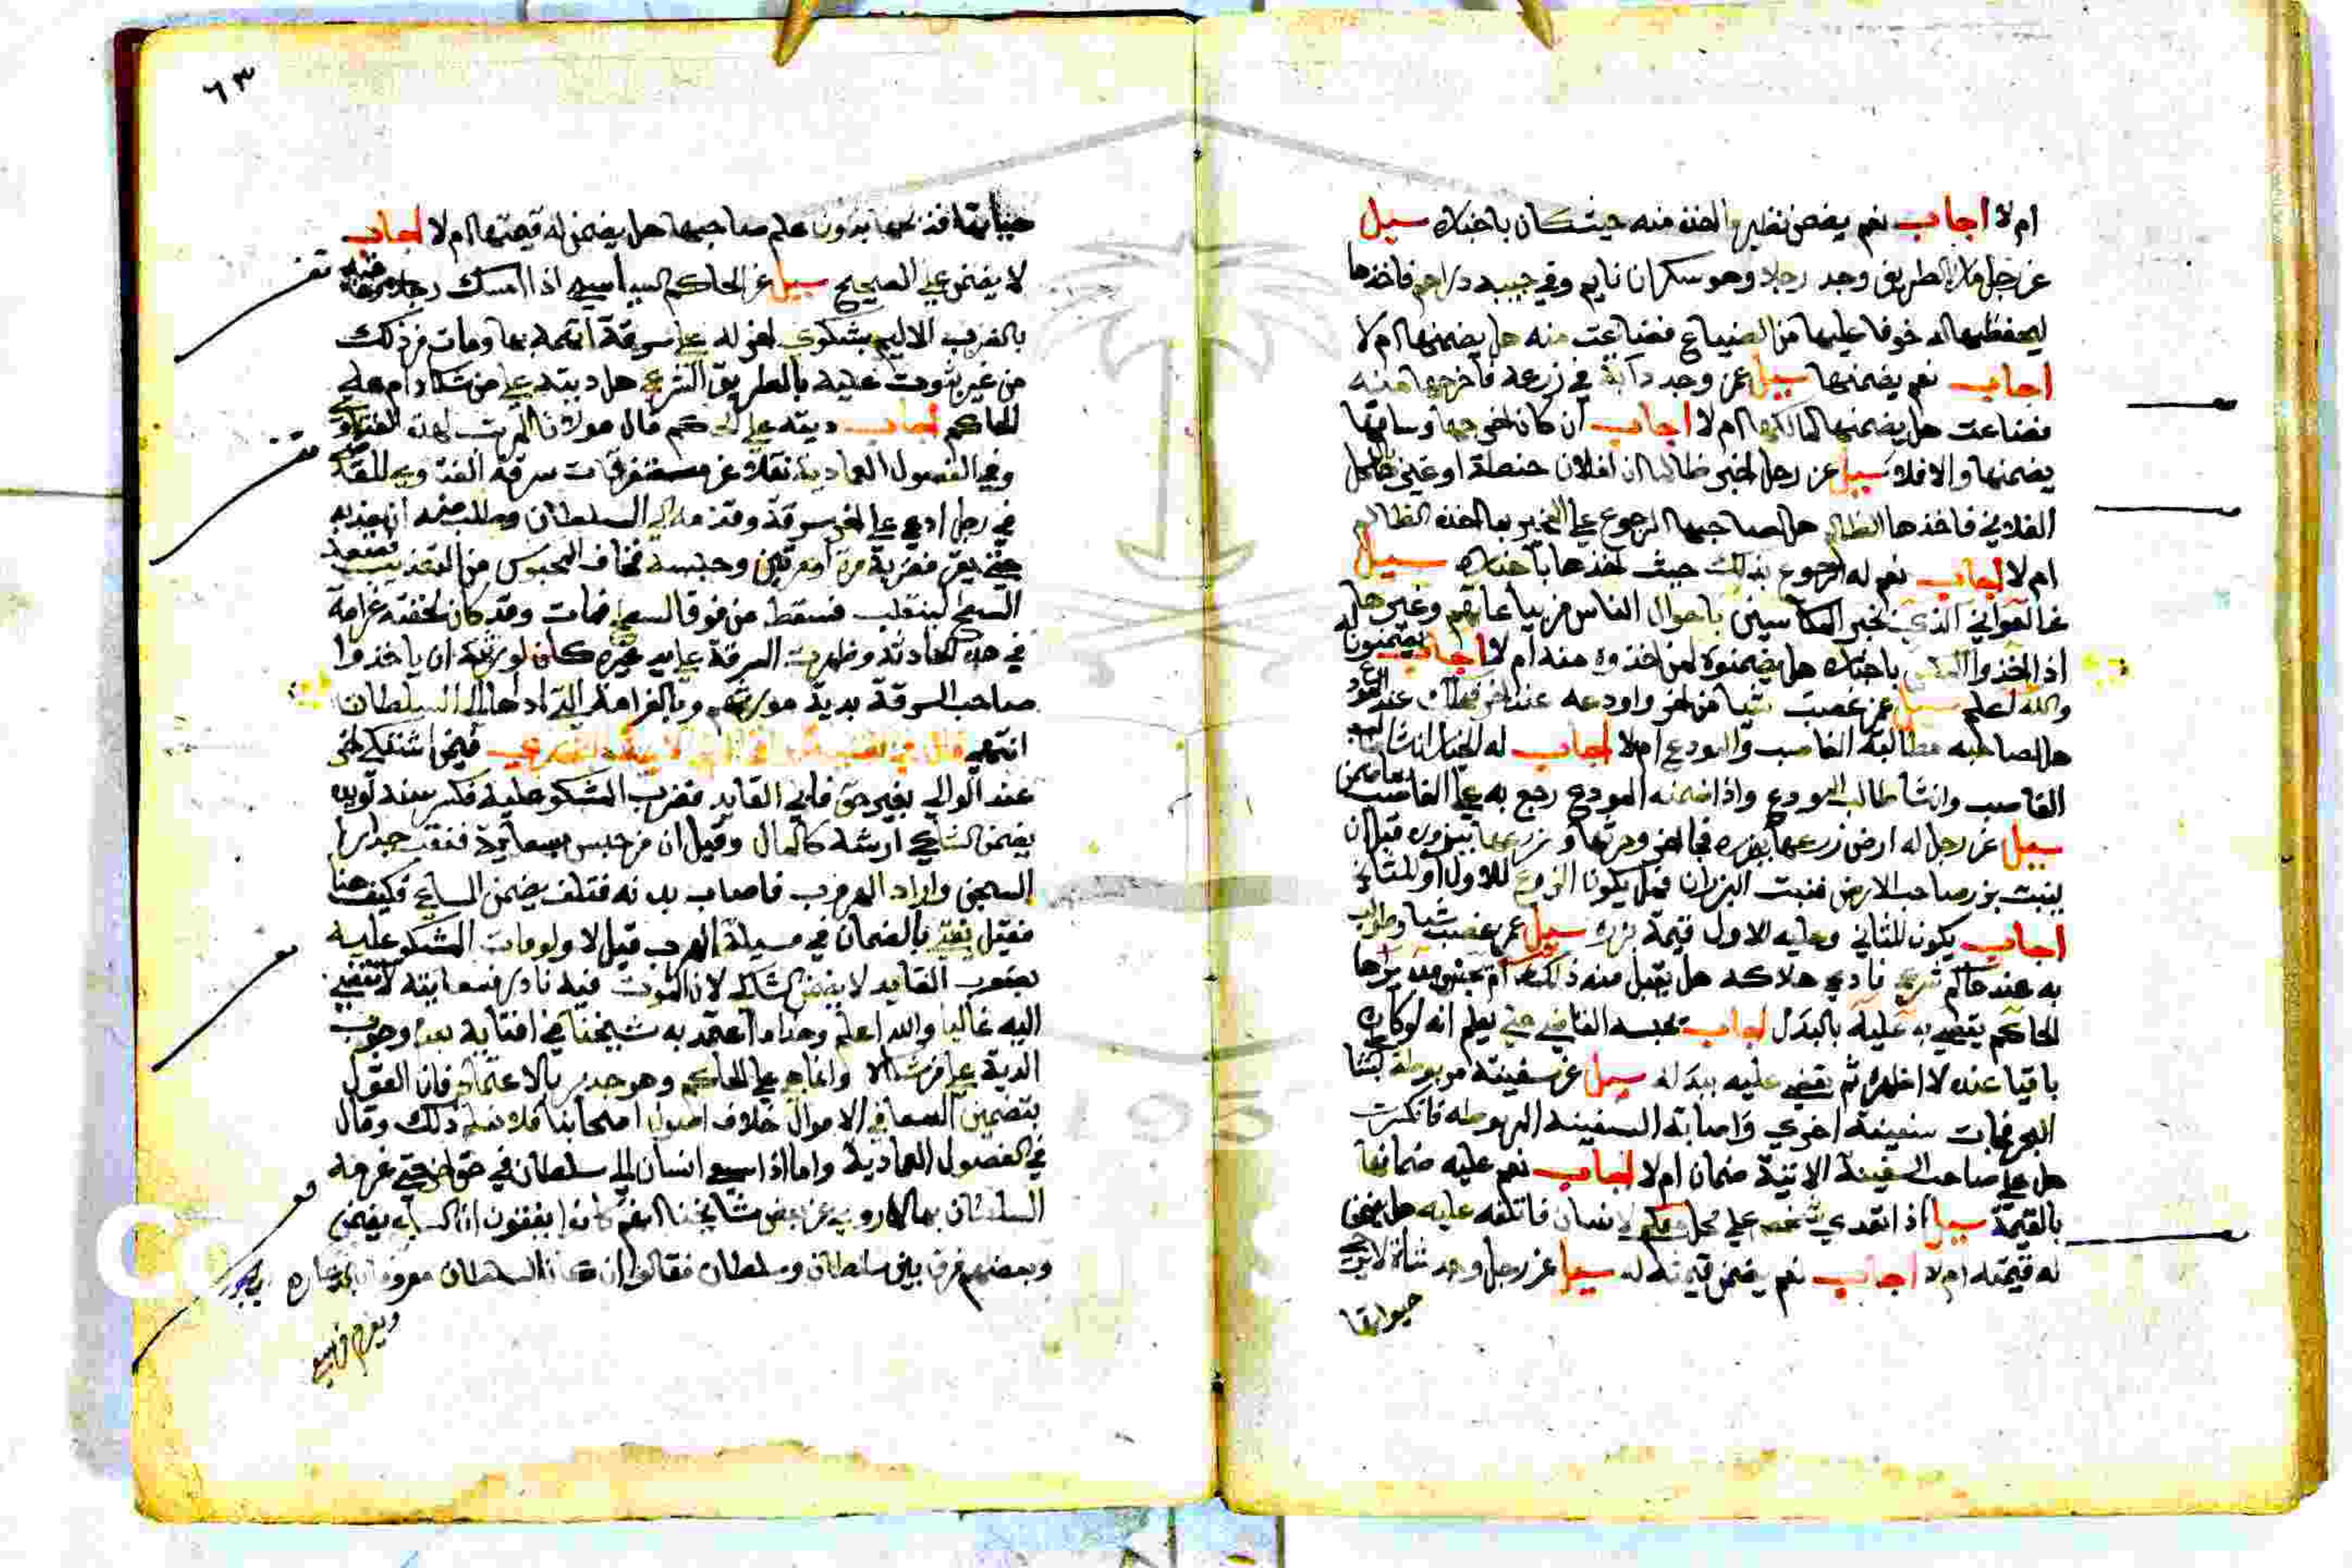 ام لا اجاب نعم يضمن نظير ما اخذ منه حيث كان باخباره سيل
عن رجل مار بالطريق وجد رجلا وهو سكران نايم وفي جيبه دراهم فاخذها
ليحفظها له خوفا عليها من الضياع فضاعت منه هل يضمنها ام لا
اجاب نعم يضمنها سيل عن وجد دابة في زرعه فاخرجها منه
فضاعت هل يضمنها لمالكها ام لا اجاب ان كان اخرجها وساقها
يضمنها والا فلا سيل عن رجل اخبر ظالما ان لفلان حنطة او غيره في المحل
الفلاني فاخذها الظالم هل لصاحبها الرجوع على المخبر بما اخذه الظالم
ام لا اجاب نعم له الرجوع بذلك حيث اخذها باخباره سيل
عن العواني الذي يخبر المكاسين باحوال الناس من بياعاتهم وغيرها
اذا اخذوا المكس باخباره هل يضمنوه لمن اخذوه منه ام لا اجاب يضمنونه له
والله اعلم سيل عن غصب شيا من اخر واودعه عند اخر فهلك عند المودع
هل لصاحبه مطالبة الغاصب والمودع ام لا اجاب له الخيار ان شا طالب
الغاصب وان شا طالب المودع واذا ضمنه المودع رجع به على الغاصب بما ضمن
سيل عن رجل له ارض زرعها ببزره فجا اخر وحرثها وزرعها ببزوره قبل ان
ينبت بزر صاحب الارض فنبت البزران فهل يكون الزرع للاول او للثاني
اجاب يكون للثاني وعليه للاول قيمة بزره سيل عن غصب شيا وطولب
به عند حاكم شرعي فادعى هلاكه هل يقبل منه ذلك ام يحبس مدة يراها
الحاكم يقضي به عليه بالبدل اجاب يحبسه القاضي حتى يعلم انه لو كان
باقيا عنده لاظهره ثم يقضي عليه ببدله سيل عن سفينة مربوطة بشط
البحر فجات سفينة اخرى واصابة السفينه المربوطه فانكسرت
هل على صاحب السفينة الاتية ضمان ام لا اجاب نعم عليه ضمانها
بالقيمة سيل اذا تعدى شخص على لانسان فاتلفه عليه هل يضمن
له قيمته ام لا اجاب نعم يضمن قيمته له سيل عن رجل وجد شاة لا يرجى
حياتها
٦٣
حياتها فذبحها بدون علم صاحبها هل يضمن له قيمتها ام لا اجاب
لا يضمن على الصحيح سيل عن الحاكم السياسي اذا امسك رجلا
بالضرب الاليم بشكوى اخر له على سرقة اتهمه بها ومات من ذلك
من غير ثبوت عليه بالطريق الشرعي هل ديته على من شكاه ام على
الحاكم اجاب ديته على الحاكم قال مولانا المرتب لهذه الفتاوى
وفي الفصول العمادية نقلا عن متفرقات سرقة الفتوى
في رجل ادعى على اخر سرقة وقدمه الى السلطان وطلب منه ان يضربه
حتى يقر فضربه مرة او مرتين وحبسه فخاف المحبوس من التعذيب فصعد
السطح لينفلت فسقط من فوق السطح فمات وقد كان لحقته غرامة
في هذه الحادثة وظهرت السرقة على يد غيره كان لورثته ان ياخذوا
صاحب السرقة بدية مورثهم وبالغرامة التي اداها الى السلطان
انتهى فيمن اشتكى اخر
عند الوالي بغير حق فاتى القايد فضرب المشكو عليه فكسر سنه او يده
يضمن الشاكي ارشه كالمال وقيل ان من حبس بسعاية فنقب جدار
السجن واراد الهرب فاصاب بدنه فتلف يضمن الساعي فكيف هنا
فقيل يفتي بالضمان في مسيلة الهرب قيل لا ولو مات المشكو عليه
بضرب القايد لا يضمن الشاكي لان الموت فيه نادر فسعايته لا تفضي
اليه غالبا والله اعلم وهذا ما اعتمد به شيخنا في افتايه بعدم وجوب
الدية على من شكا وانما هي على الحاكم وهو جدير بالاعتماد فان القول
بتضمين السعاة في الاموال خلاف اصول اصحابنا فلا نعلم ذلك وقال
في الفصول العمادية واما اذا سعى انسان الى سلطان في حق اخر حتى غرمه
السلطان مالا روي عن بعض مشايخنا انهم كانوا يفتون ان الساعي يضمن
وبعضهم فرق بين سلطان وسلطان فقالوا ان كان السلطان معروفا